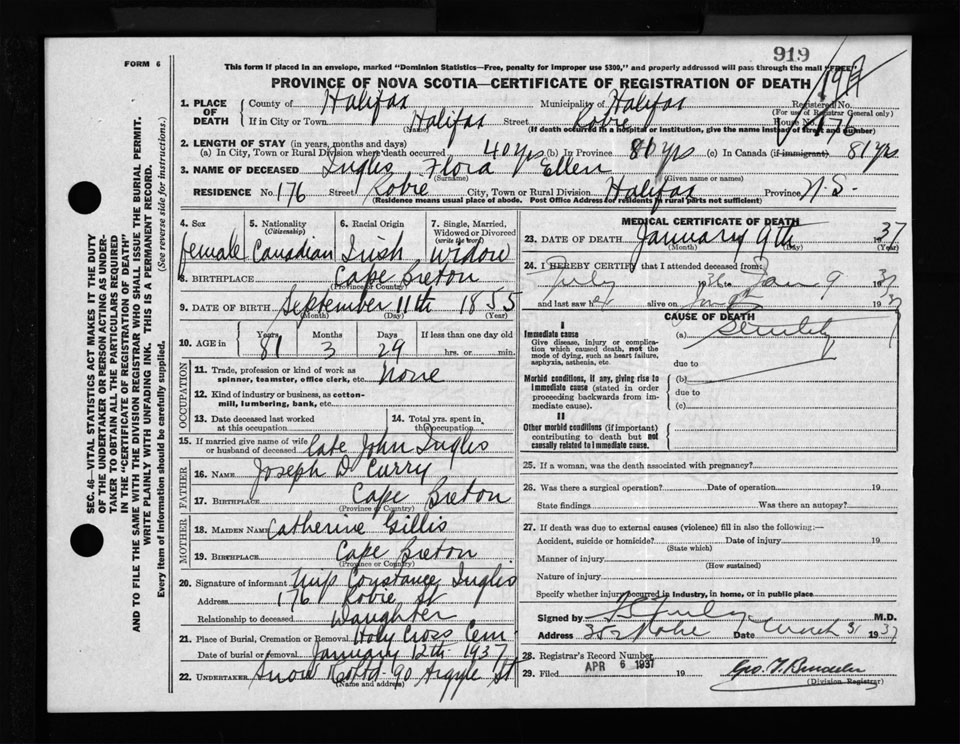 919
FORM 6
This form if placed in an envelope, marked "Dominion Statistics—Free, penalty for improper use $300," and properly addressed will pass through the mail "FREE"
PROVINCE OF NOVA SCOTIA—CERTIFICATE OF REGISTRATION OF DEATH
1. PLACE OF DEATH County of Halifax Municipality of Halifax Registered No.
(For use of Registrar General only)
If in City or Town Halifax Street Robie House No. 176
(Name) (If death occurred in a hospital or institution, give the name instead of street and number)
2. LENGTH OF STAY (in years, months and days)
(a) In City, Town or Rural Division where death occurred 40 yrs (b) In Province 81 yrs (c) In Canada (if immigrant) 81 yrs
3. NAME OF DECEASED Inglis Flora Ellen
(Surname) (Given name or names)
RESIDENCE No. 176 Street Robie City, Town or Rural Division Halifax Province N.S.
(Residence means usual place of abode. Post Office Address for residents in rural parts not sufficient)
4. Sex 5. Nationality (Citizenship) 6. Racial Origin 7. Single, Married, Widowed or Divorced (write the word)
female Canadian Irish Widow
8. BIRTHPLACE Cape Breton
(Province or Country)
9. DATE OF BIRTH September 11th 1855
(Month) (Day) (Year)
10. AGE in Years Months Days If less than one day old
81 3 29 hrs. or min.
OCCUPATION
11. Trade, profession or kind of work as spinner, teamster, office clerk, etc. None
12. Kind of industry or business, as cotton-mill, lumbering, bank, etc.
13. Date deceased last worked at this occupation 14. Total yrs. spent in this occupation
15. If married give name of wife or husband of deceased late John Inglis
FATHER
16. NAME Joseph D Curry
17. BIRTHPLACE Cape Breton
(Province or Country)
MOTHER
18. MAIDEN NAME Catherine Gillis
19. BIRTHPLACE Cape Breton
(Province or Country)
20. Signature of informant Miss Constance Inglis
Address 176 Robie St
Relationship to deceased Daughter
21. Place of Burial, Cremation or Removal Holy Cross Cem-
Date of burial or removal January 12th 1937
22. UNDERTAKER Snow 90 Argyle St
(Name and address)
MEDICAL CERTIFICATE OF DEATH
23. DATE OF DEATH January 9th 1937
(Month) (Day) (Year)
24. I HEREBY CERTIFY that I attended deceased from:
July 1936 to Jan 9 1937
and last saw her alive on 1937
CAUSE OF DEATH
I
Immediate cause (a) Senility
Give disease, injury or complication which caused death, not the mode of dying, such as heart failure, asphyxia, asthenia, etc.
due to
Morbid conditions, if any, giving rise to immediate cause (stated in order proceeding backwards from immediate cause).
(b)
due to
(c)
II
Other morbid conditions (if important) contributing to death but not causally related to Immediate cause.
25. If a woman, was the death associated with pregnancy?
26. Was there a surgical operation? Date of operation 19
State findings Was there an autopsy?
27. If death was due to external causes (violence) fill in also the following:—
Accident, suicide or homicide? Date of injury 19
(State which)
Manner of injury
(How sustained)
Nature of injury
Specify whether injury occurred in industry, in home, or in public place
Signed by M.D.
Address Date March 31 1937
28. Registrar's Record Number
APR 6 1937
29. Filed 19
(Division Registrar)
SEC. 46—VITAL STATISTICS ACT MAKES IT THE DUTY
OF THE UNDERTAKER OR PERSON ACTING AS UNDER-
TAKER TO OBTAIN ALL THE PARTICULARS REQUIRED
IN THE "CERTIFICATE OF REGISTRATION OF DEATH"
AND TO FILE THE SAME WITH THE DIVISION REGISTRAR WHO SHALL ISSUE THE BURIAL PERMIT.
WRITE PLAINLY WITH UNFADING INK. THIS IS A PERMANENT RECORD.
Every item of information should be carefully supplied. (See reverse side for instructions.)